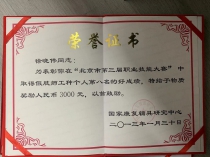 荣誉证书
同志：
为表彰你在“北京市第三届职业技能大赛”中
取得假肢师工种个人第八名的好成绩，特给予物质
奖励人民币 3000 元，以资鼓励。
国家康复辅具研究中心
二〇一三年一月三十日